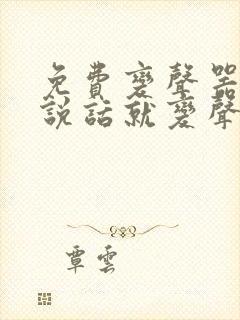 免費變聲器
說話就變聲
覃雲